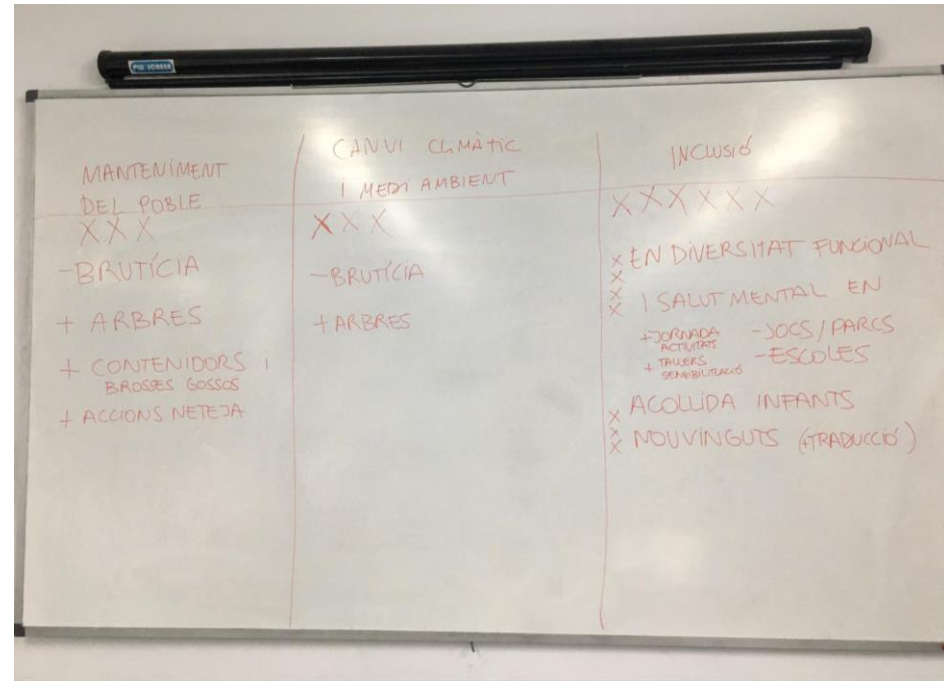 MANTENIMENT
DEL POBLE
XXX
-BRUTÍCIA
+ ARBRES
+ CONTENIDORS I
BROSSES GOSSOS
+ ACCIONS NETEJA
CANVI CLIMÀTIC
I MEDI AMBIENT
XXX
-BRUTÍCIA
+ARBRES
INCLUSIÓ
XXXXXX
X EN DIVERSITAT FUNCIONAL
X
X I SALUT MENTAL EN
X
+JORNADA
ACTIVITATS
+ TALLERS
SENSIBILITZACIÓ
-JOCS/PARCS
-ESCOLES
X ACOLLIDA INFANTS
X
X NOUVINGUTS (+TRADUCCIÓ)